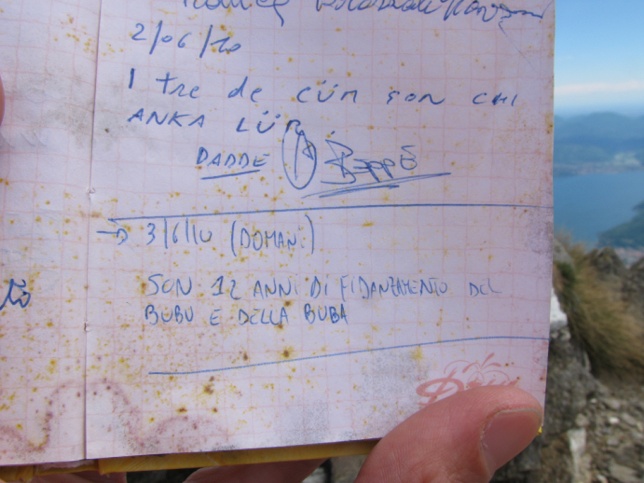 2/06/10
I tre de CÜM SON CHI
ANKA LÜR
DADDE BEPPE
→ 3/6/10 (DOMANI)
SON 12 ANNI DI FIDANZAMENTO DEL
BUBU E DELLA BUBA